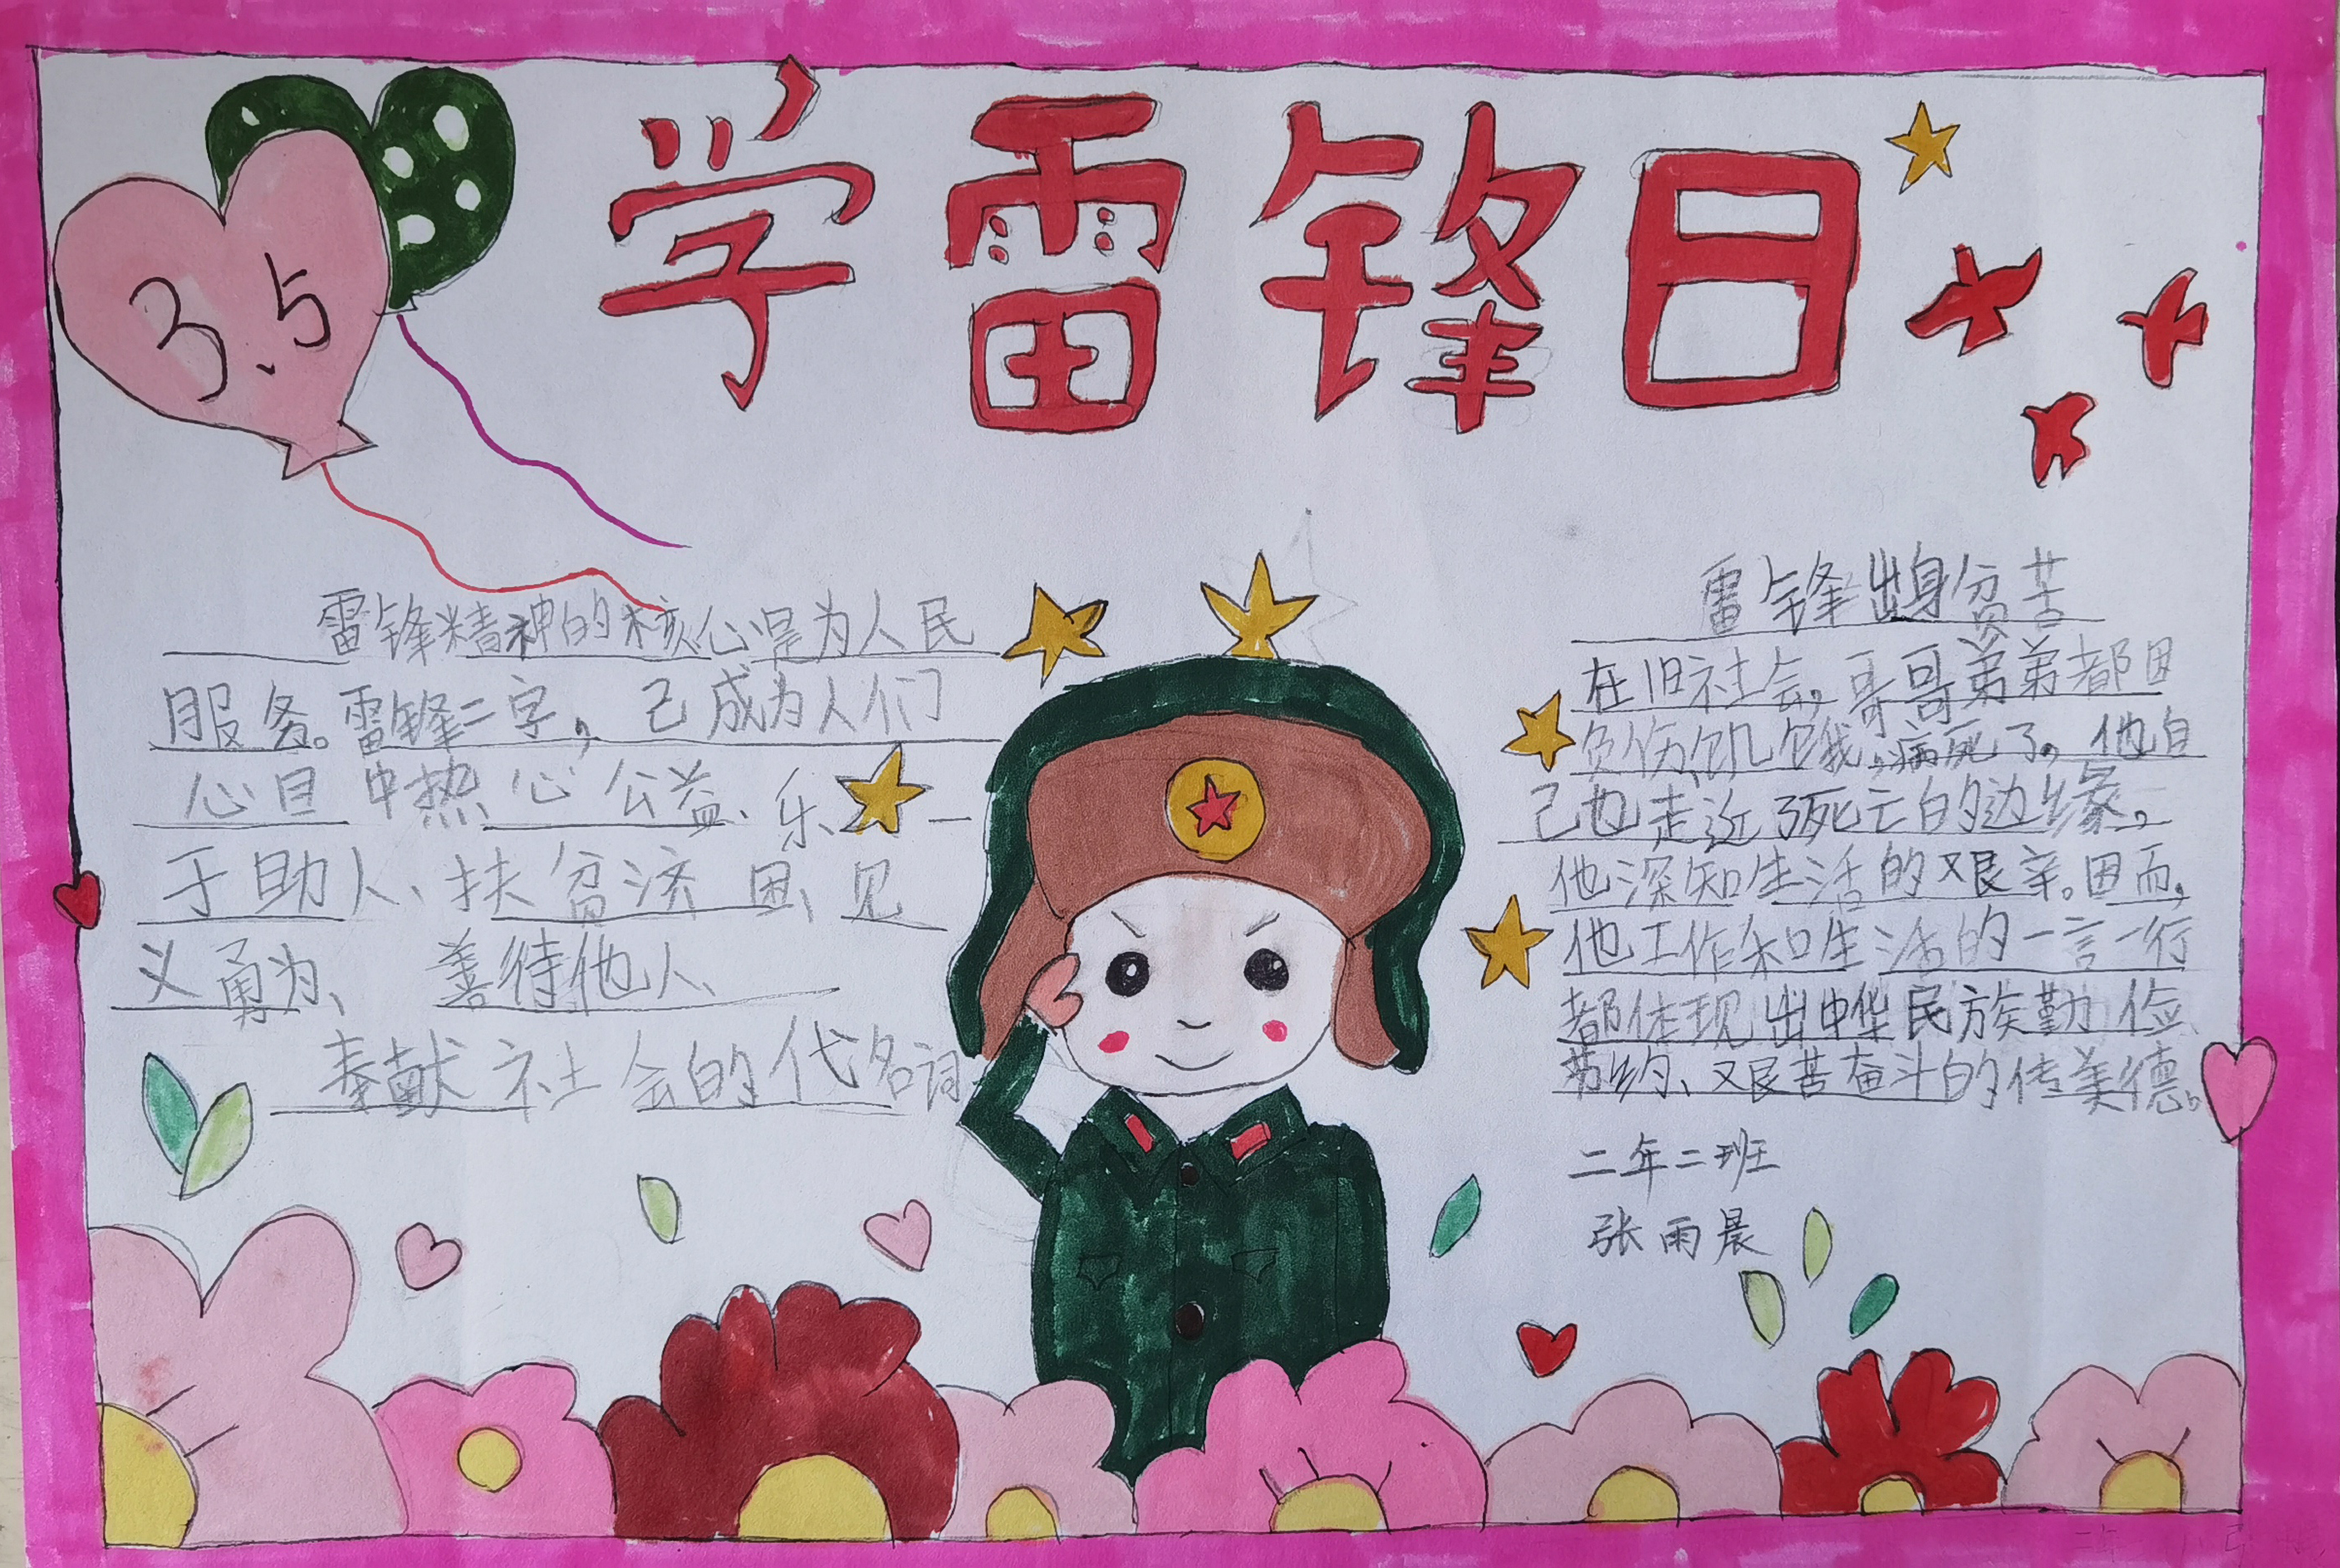 3.5
学雷锋日
雷锋精神的核心是为人民
服务。雷锋二字，己成为人们
心目中热心公益、乐
于助人、扶贫济困、见
义勇为、善待他人、
奉献社会的代名词
雷锋出身贫苦
在旧社会，哥哥弟弟都因
负伤、饥饿，病死了，他自
己也走近了死亡的边缘，
他深知生活的艰辛。因而，
他工作和生活的一言一行
都体现出中华民族勤俭、
节约、艰苦奋斗的传美德。
二年二班
张雨晨